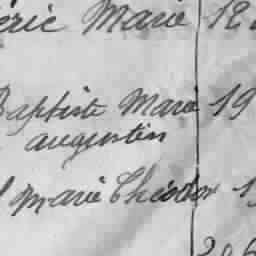 éric Marie 12
Baptiste Marie 19
augustin
l Marie Théodor 1
206